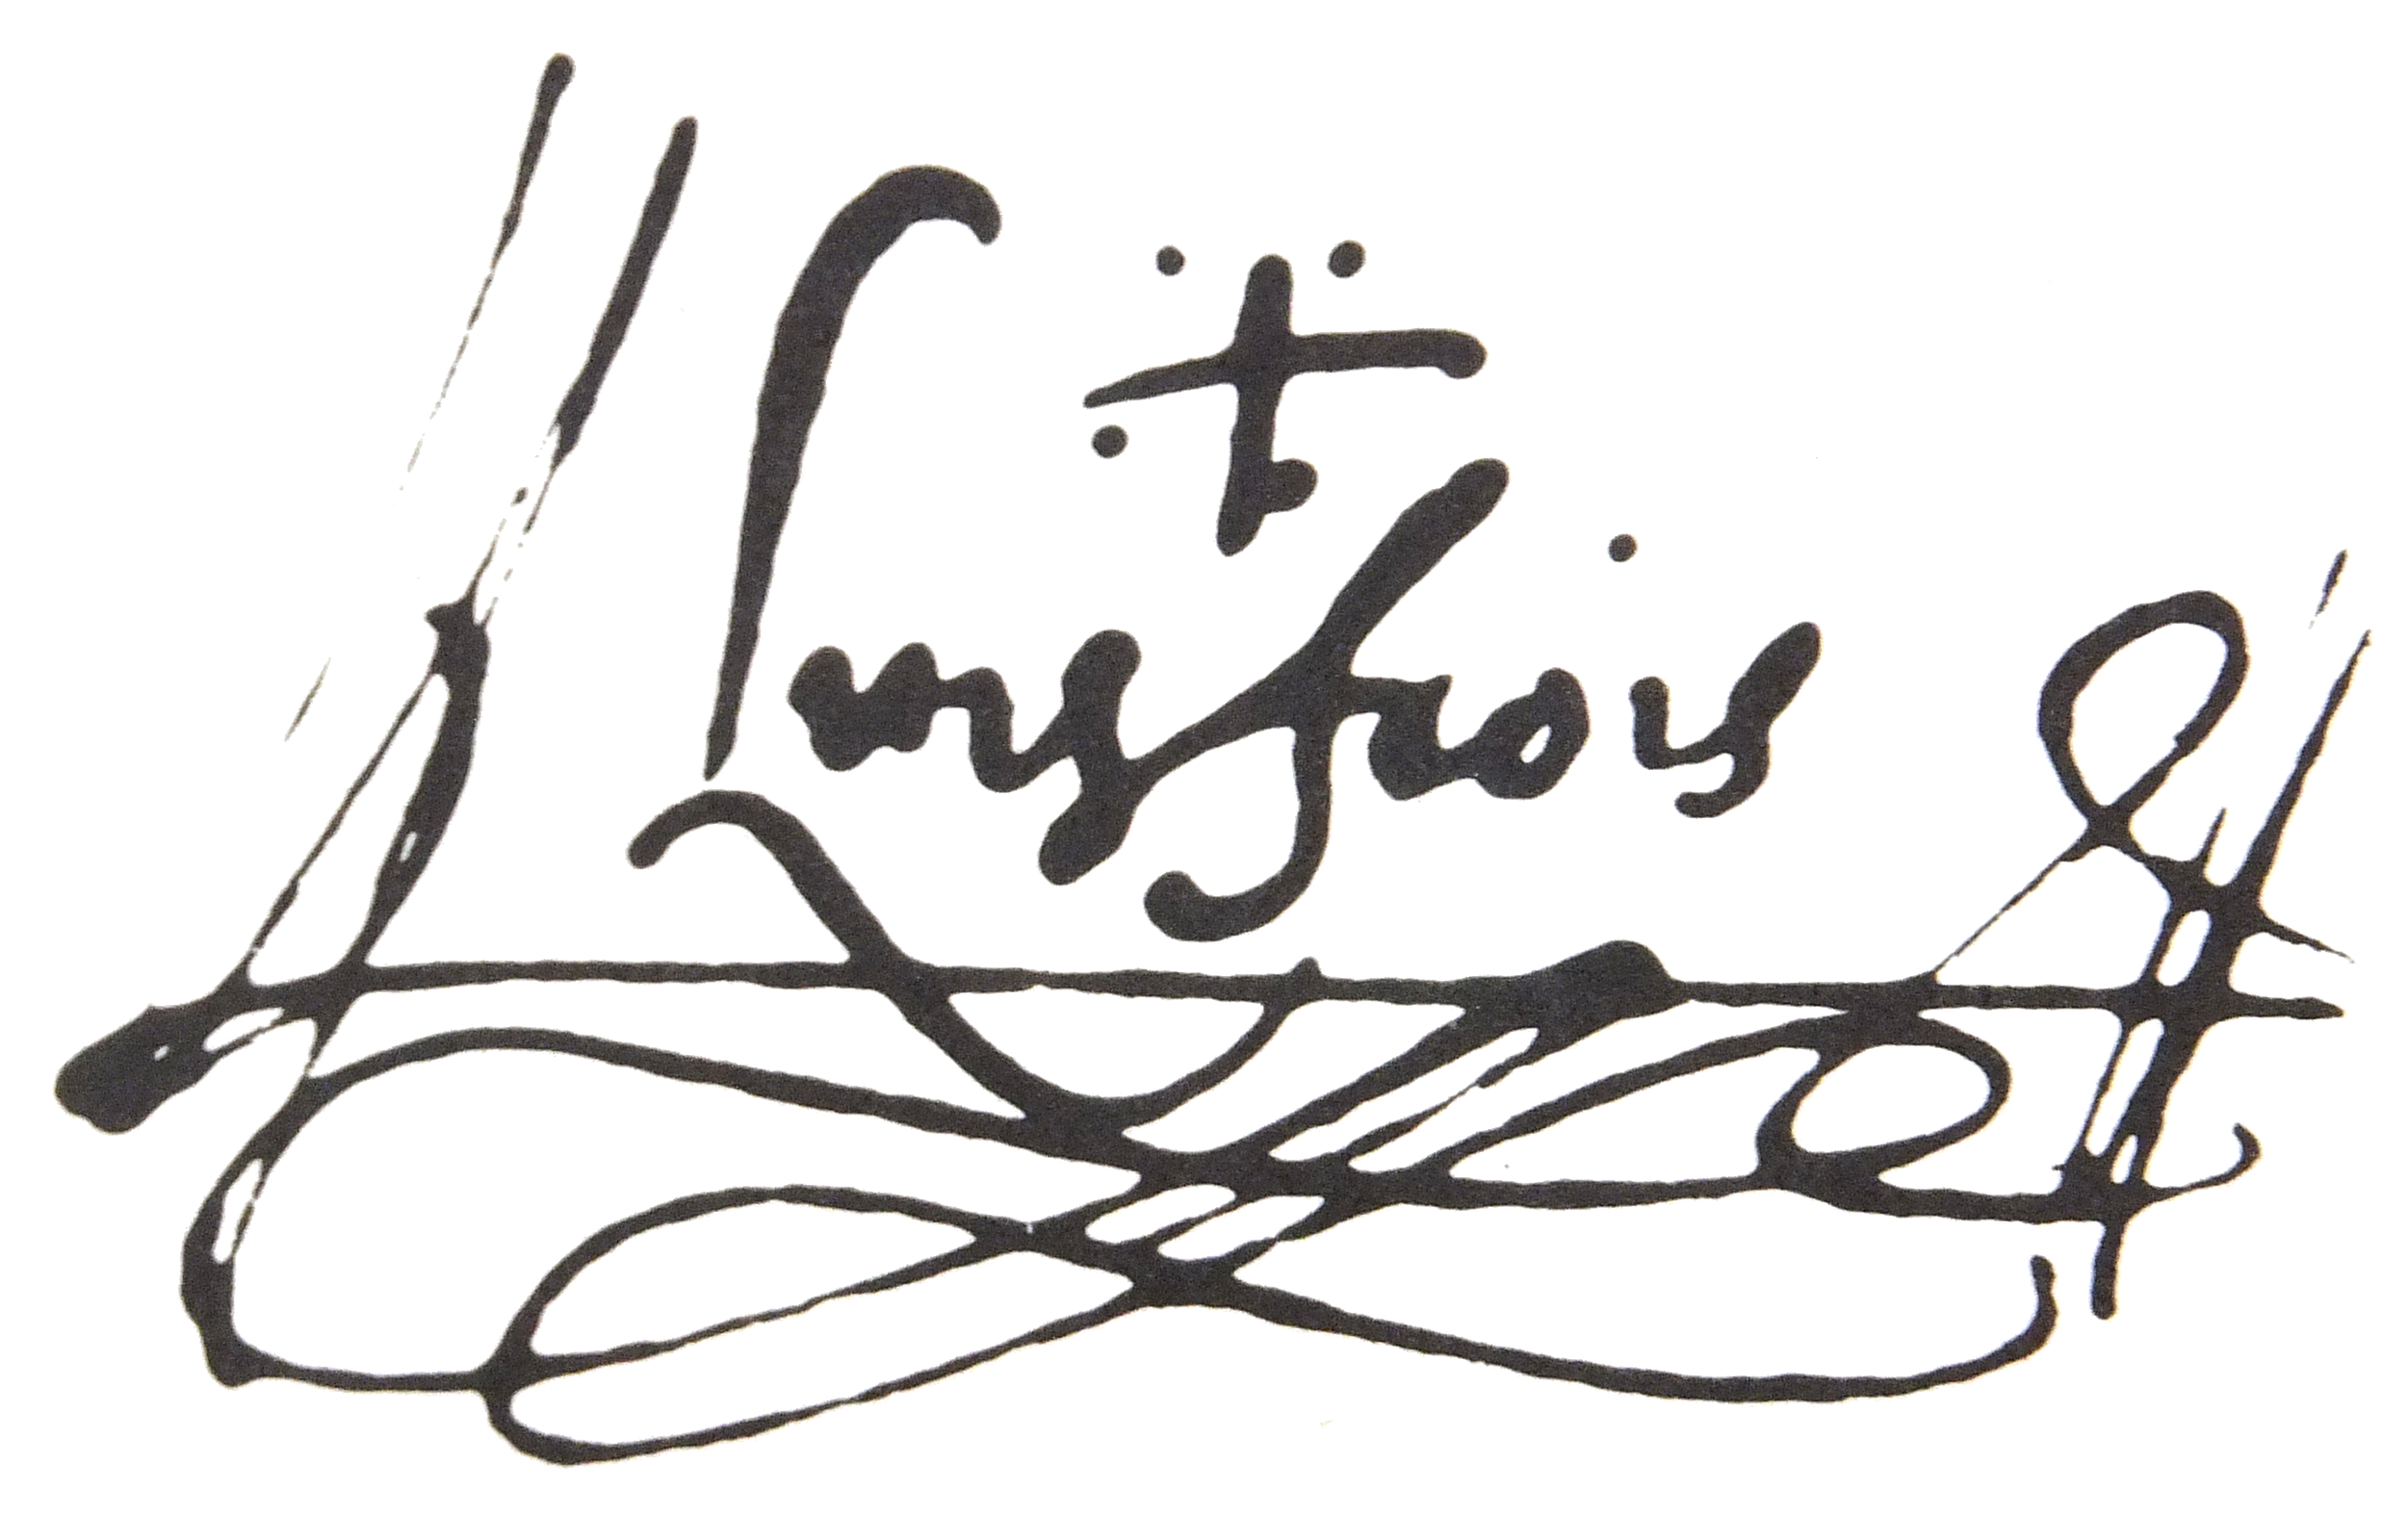 Luis frois